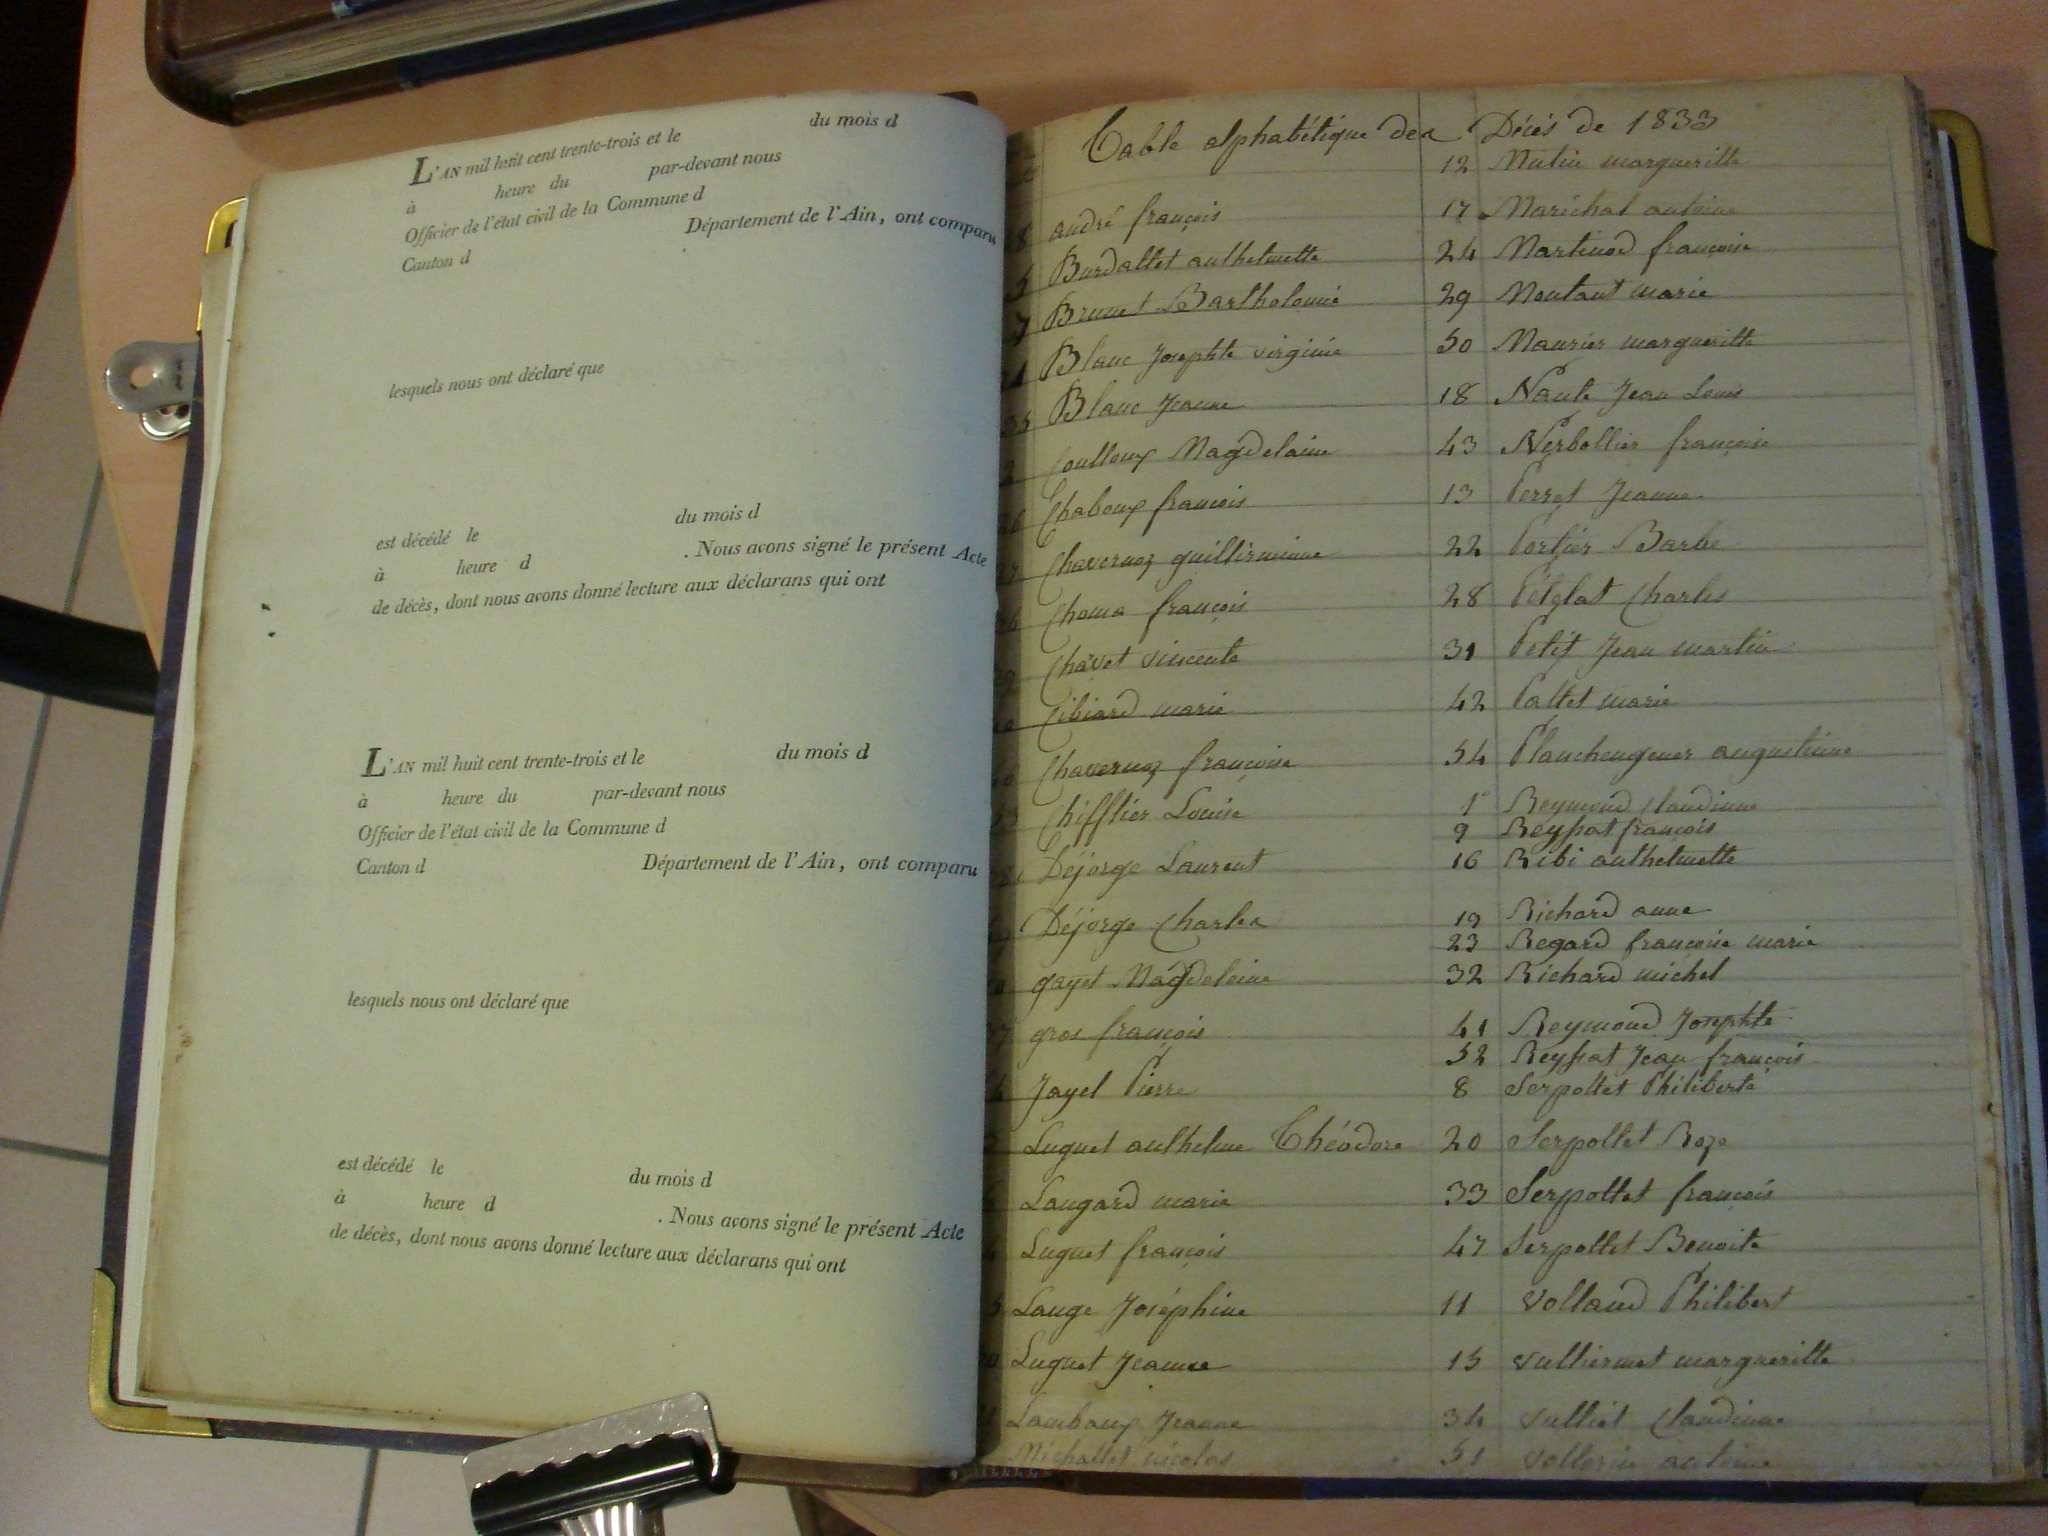 L'AN mil huit cent trente-trois et le du mois d
à heure du par-devant nous
Officier de l'état civil de la Commune d
Canton d Département de l'Ain, ont comparu
lesquels nous ont déclaré que
est décédé le du mois d
à heure d . Nous avons signé le présent Acte
de décès, dont nous avons donné lecture aux déclarans qui ont
L'AN mil huit cent trente-trois et le du mois d
à heure du par-devant nous
Officier de l'état civil de la Commune d
Canton d Département de l'Ain, ont comparu
lesquels nous ont déclaré que
est décédé le du mois d
à heure d . Nous avons signé le présent Acte
de décès, dont nous avons donné lecture aux déclarans qui ont
Table alphabétique des Décès de 1833
andré françois
Burdallet anthelmette
Brunet Bartholomé
Blanc Josephte virginie
Blanc Jeanne
Coulloux Magdelaine
Chaboux françois
Chavernoz guillermine
Choma françois
Chavet vincente
Cibiard marie
Chavernoz françoise
Chifflier Louise
Déjorge Laurent
Déjorge Charles
gayet Magdeleine
gros françois
Jayel Pierre
Luguet anthelme Théodore
Laugard marie
Luguet françois
Lauge Joséphine
Luguet Jeanne
Lambaux Jeanne
Michallet nicolas
12 Mutin margueritte
17 Maréchal antoine
24 Martinod françoise
29 Montant marie
50 Maurier margueritte
18 Nante Jean Louis
43 Nerbollier françoise
13 Perret Jeanne
22 Portier Barbe
28 Pételat Charles
31 Petit Jean martin
42 Pallet marie
54 augustinne
1 Reymond Claudinne
9 Reyssat françois
16 Ribi anthelmette
19 Richard anne
23 Regard françoise marie
32 Richard michel
41 Reymond Josephte
52 Reyssat Jean françois
8 Serpollet Philiberte
20 Serpollet Roze
33 Serpollet françois
47 Serpollet Benoite
11 Volland Philibert
15 Vulliermet margueritte
34 Vulliet Claudinne
51 Vollerin antoine